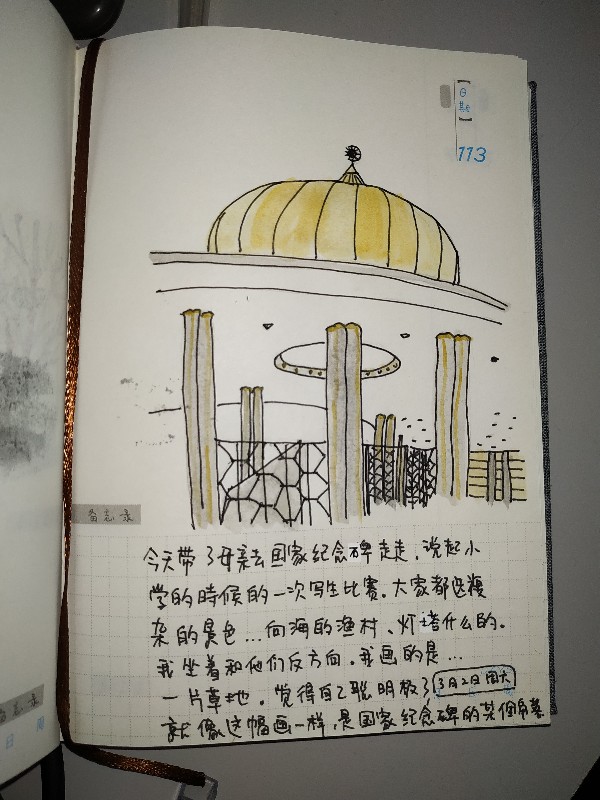 日期
113
备忘录
今天带了母亲去国家纪念碑走走,说起小
学的時候的一次写生比赛。大家都选複
杂的景色...向海的渔村、灯塔什么的。
我坐着和他们反方向。我画的是...
一片草地。觉得自己聪明极了
3月2日
就像这幅画一样,是国家纪念碑的某個角
备忘录
日 期